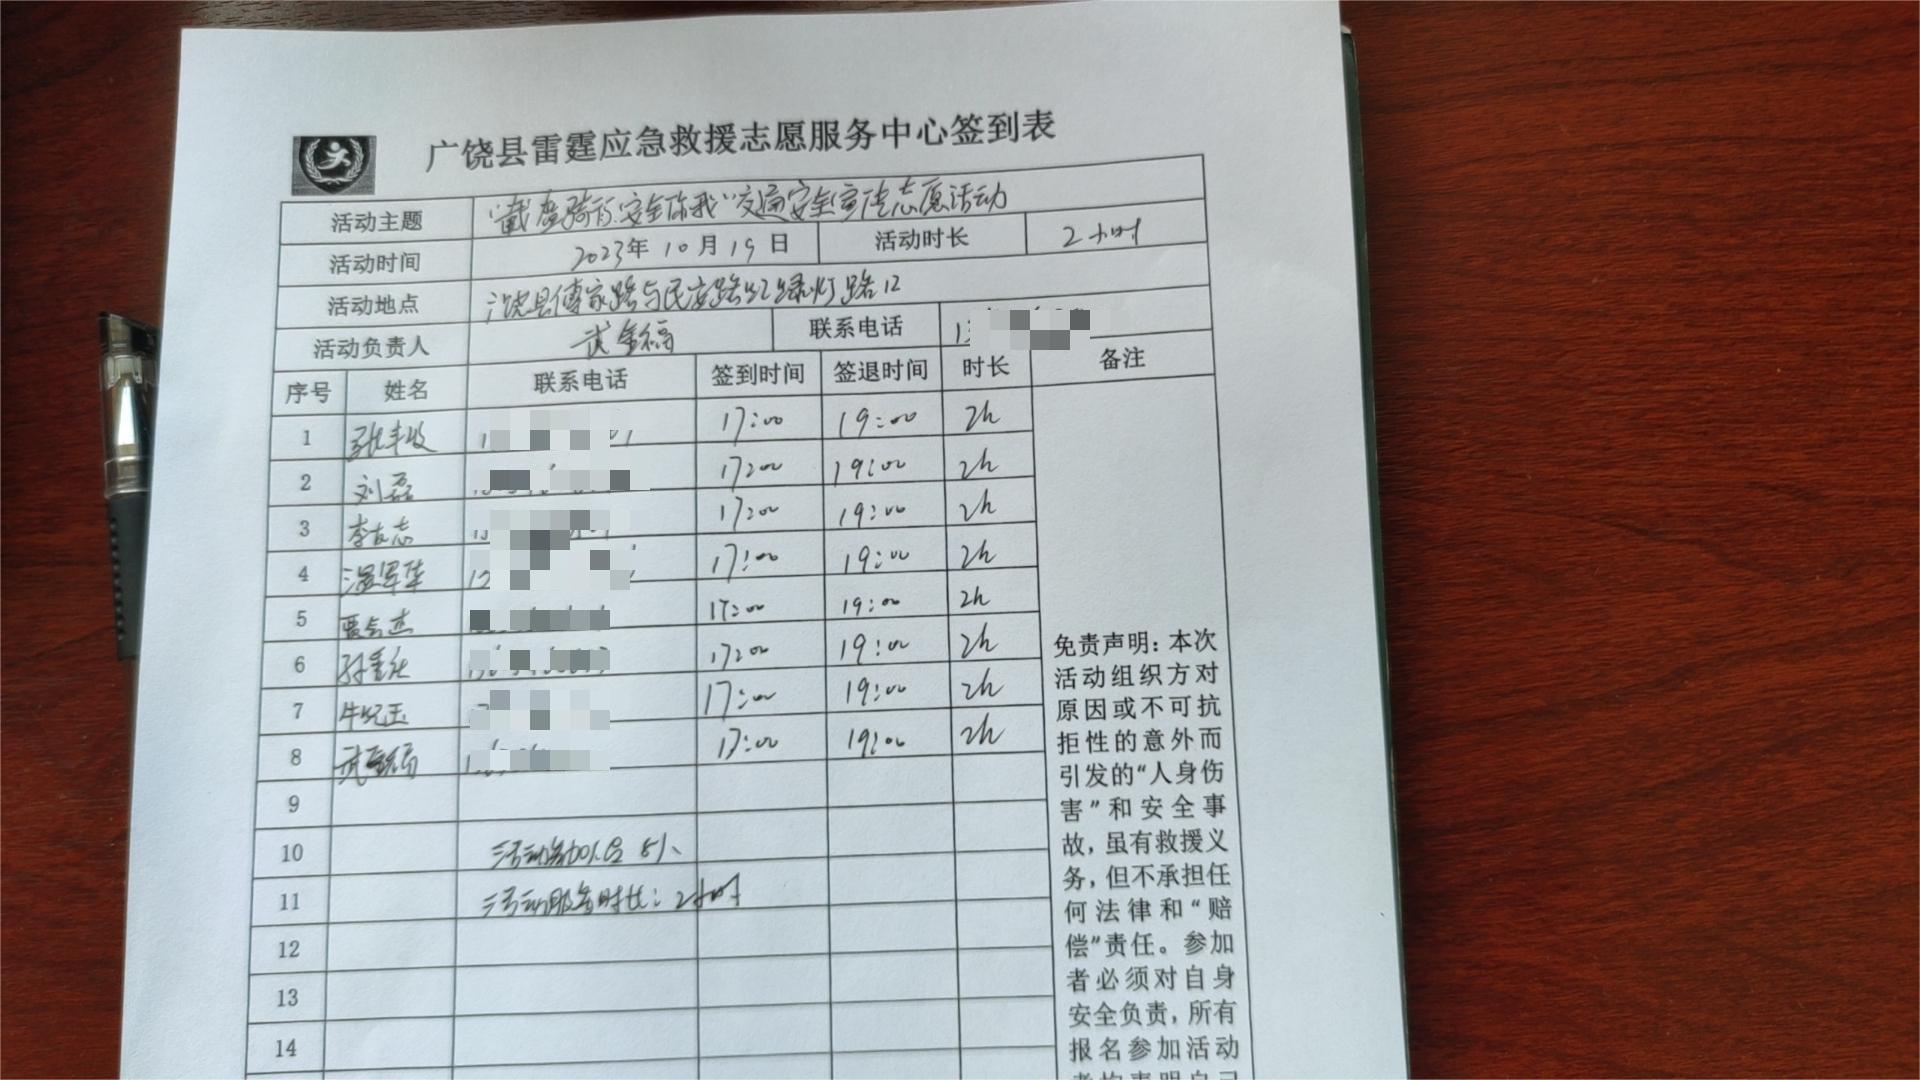 广饶县雷霆应急救援志愿服务中心签到表
活动主题 “戴盔骑行.安全你我”交通安全宣传志愿活动
活动时间 2023年 10月 19日 活动时长 2小时
活动地点 广饶县傅家路与民安路红绿灯路口
活动负责人 武金福 联系电话
序号 姓名 联系电话 签到时间 签退时间 时长 备注
1 张丰收 17:00 19:00 2h
2 刘磊 17:00 19:00 2h
3 李友志 17:00 19:00 2h
4 温军华 17:00 19:00 2h
5 17:00 19:00 2h
6 17:00 19:00 2h
7 17:00 19:00 2h
8 武金福 17:00 19:00 2h
9
10 活动参加人员 8人
11 活动服务时长：2小时
12
13
14
免责声明：本次
活动组织方对
原因或不可抗
拒性的意外而
引发的“人身伤
害”和安全事
故，虽有救援义
务，但不承担任
何法律和“赔
偿”责任。参加
者必须对自身
安全负责，所有
报名参加活动
者均表明自己